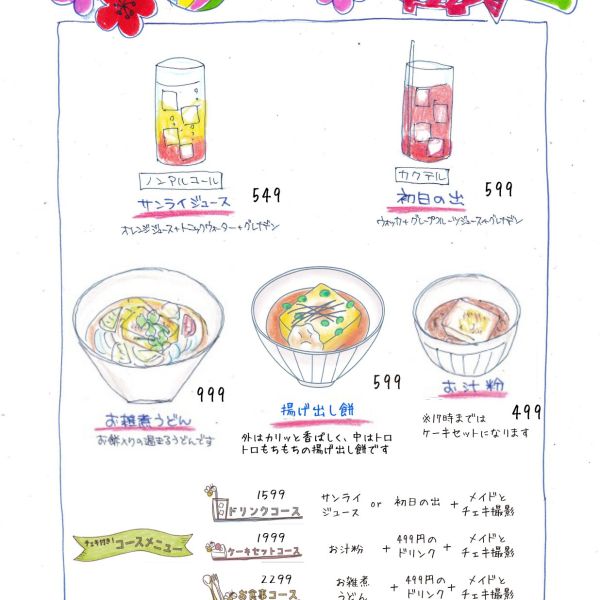 ノンアルコール
サンライジュース
549
オレンジジュース+トニックウォーター+グレナデン
カクテル
初日の出
599
ウォッカ+グレープフルーツジュース+グレナデン
999
お雑煮うどん
599
揚げ出し餅
外はカリッと香ばしく、中はトロ
トロもちもちの揚げ出し餅です
お汁粉
499
※17時までは
ケーキセットになります
チェキ付き!コースメニュー
1599
ドリンクコース
サンライ
ジュース
or
初日の出
+
メイドと
チェキ撮影
1999
ケーキセットコース
お汁粉
+
499円の
ドリンク
+
メイドと
チェキ撮影
2299
お食事コース
お雑煮
うどん
+
499円の
ドリンク
+
メイドと
チェキ撮影